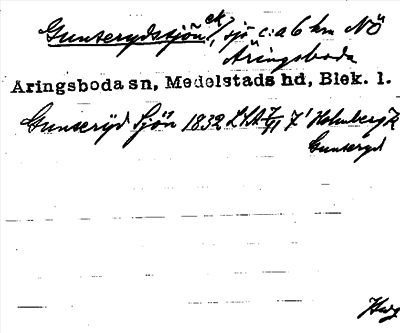 Gunserydssjön, sjö c:a 6 km NÖ
Äringsboda
Aringsboda sn, Medelstads hd, Blek. l.
Gunseryd Sjön 1832 LSA Holmberg
Gunseryd